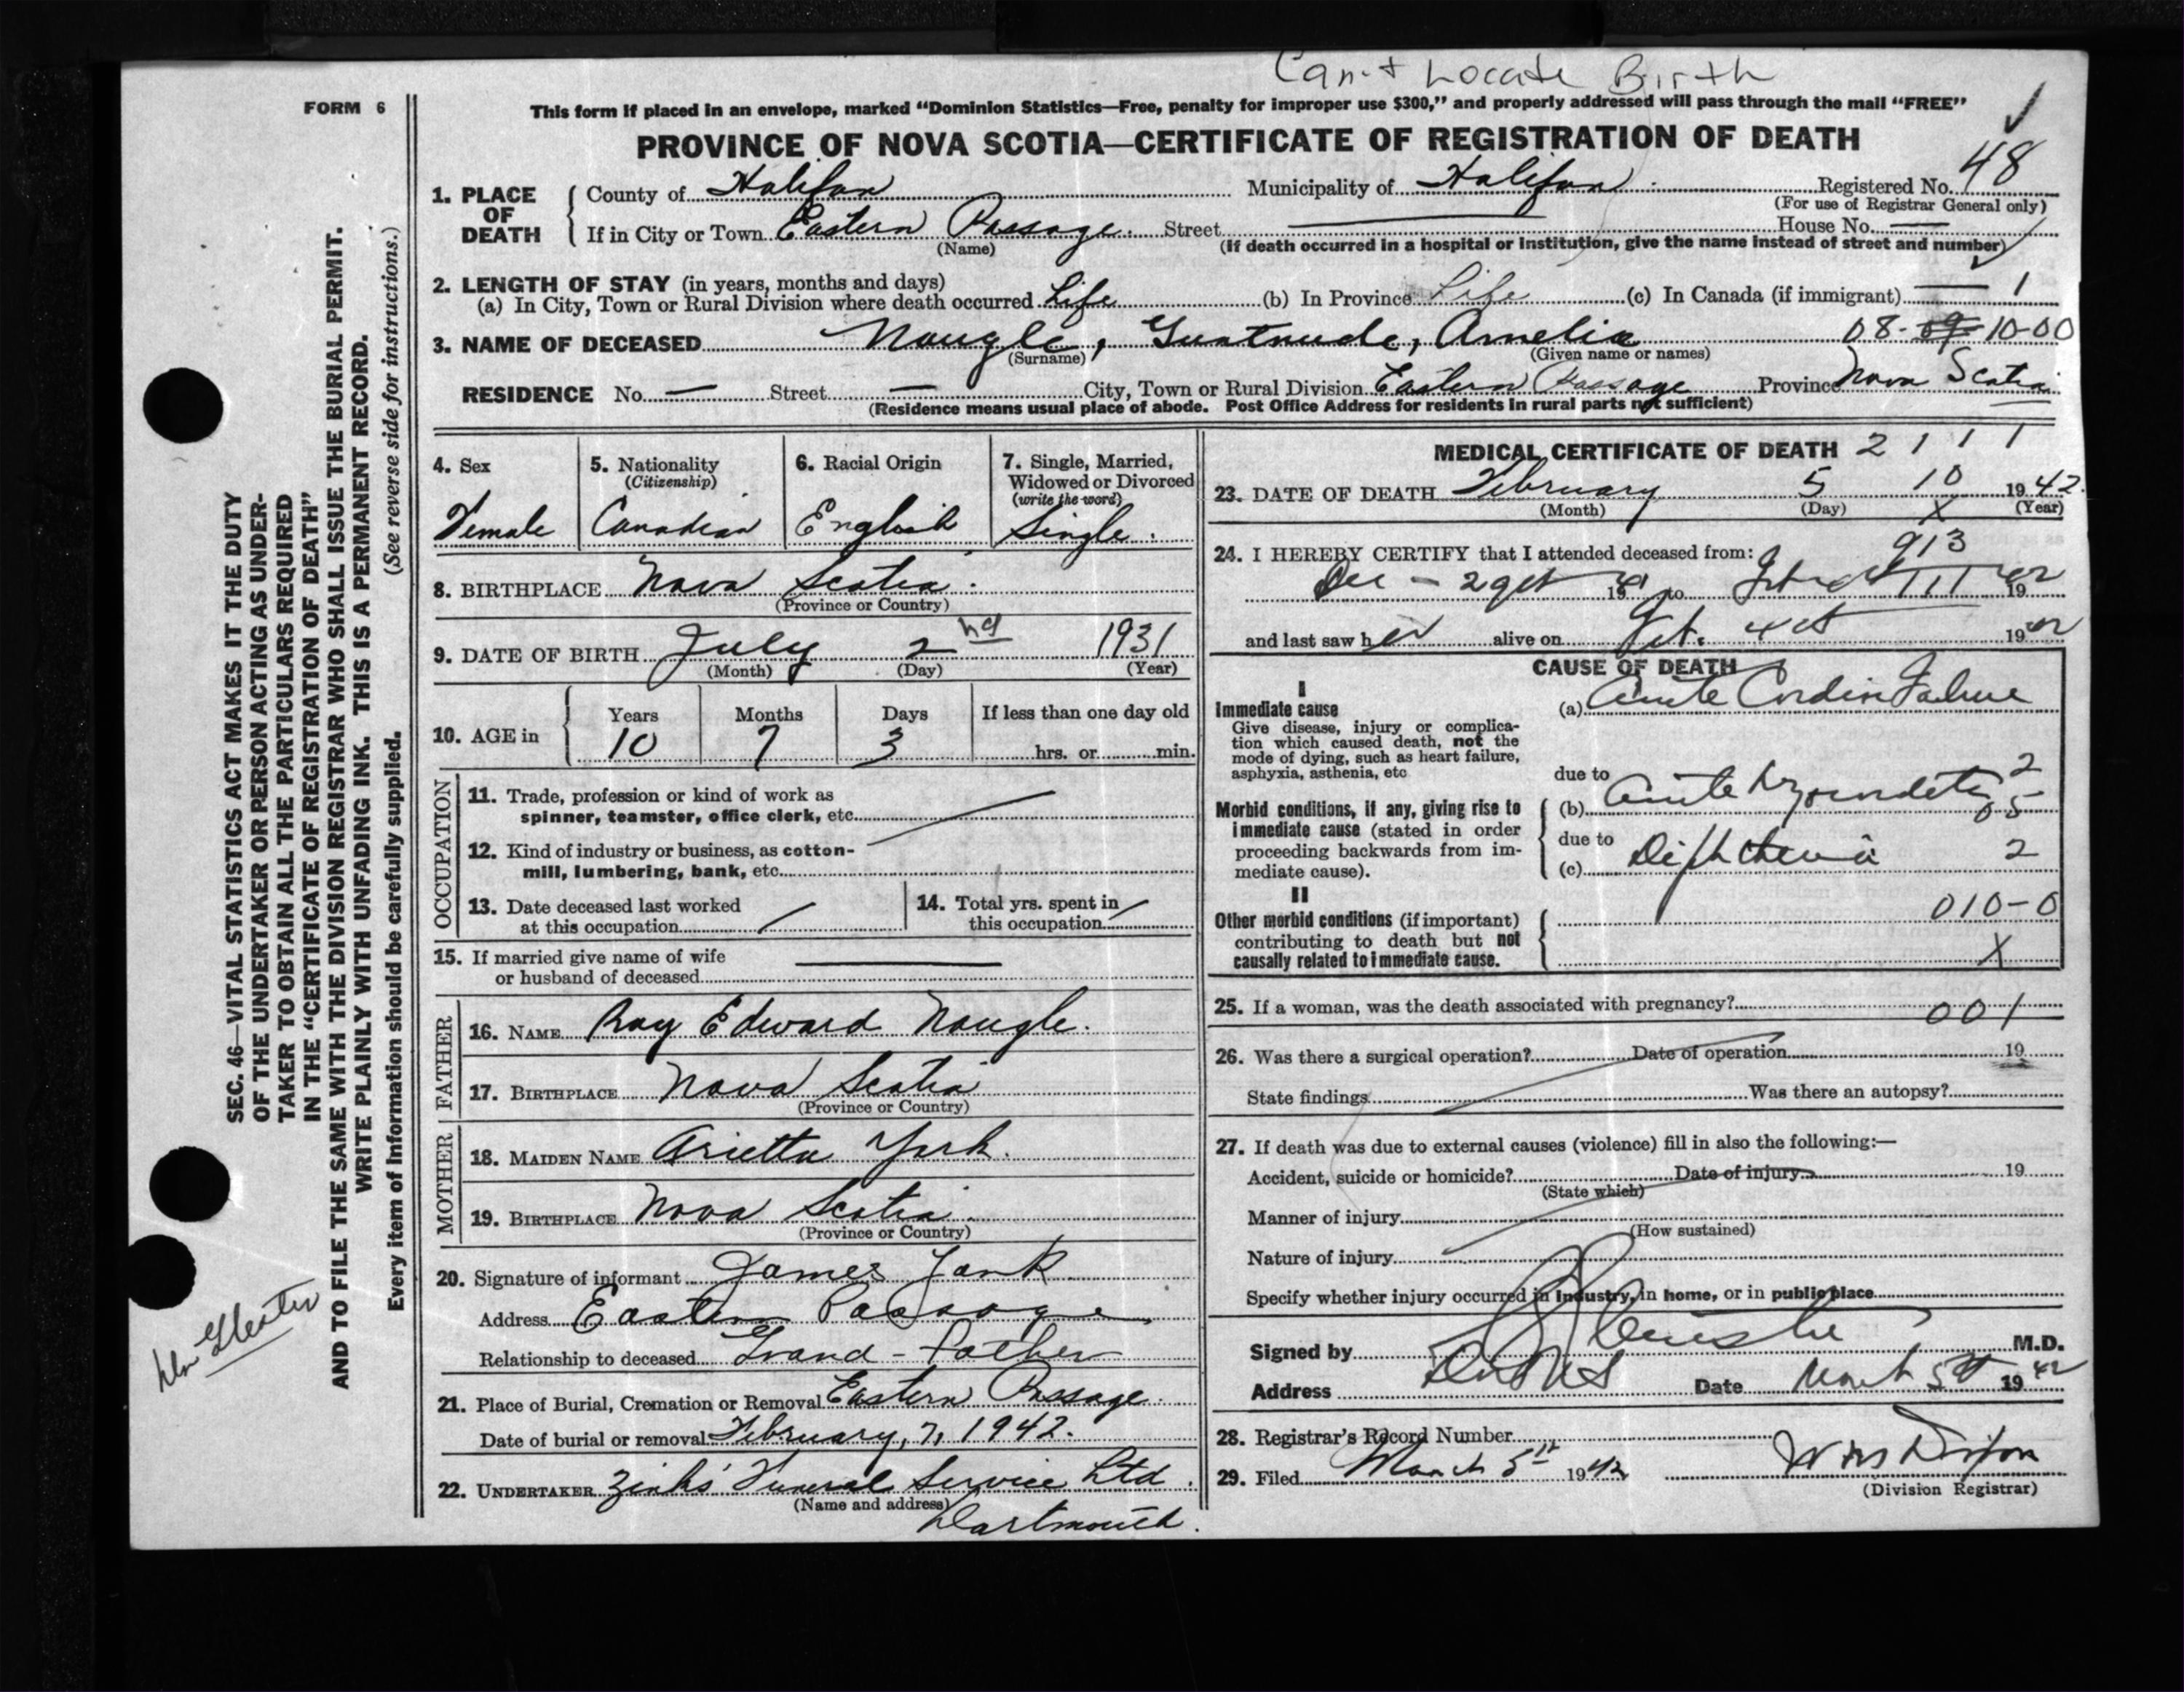 Can't Locate Birth
FORM 6
This form if placed in an envelope, marked "Dominion Statistics—Free, penalty for improper use $300," and properly addressed will pass through the mail "FREE"
PROVINCE OF NOVA SCOTIA—CERTIFICATE OF REGISTRATION OF DEATH
48
1. PLACE OF DEATH
County of Halifax Municipality of Halifax Registered No.
(For use of Registrar General only)
If in City or Town Eastern Passage. Street House No.
(Name) (If death occurred in a hospital or institution, give the name instead of street and number)
2. LENGTH OF STAY (in years, months and days)
(a) In City, Town or Rural Division where death occurred Life (b) In Province Life (c) In Canada (if immigrant) — 1
3. NAME OF DECEASED Naugle, Gertrude, Amelia 08-09-10-00
(Surname) (Given name or names)
RESIDENCE No. — Street — City, Town or Rural Division Eastern Passage Province Nova Scotia
(Residence means usual place of abode. Post Office Address for residents in rural parts not sufficient)
SEC. 46—VITAL STATISTICS ACT MAKES IT THE DUTY
OF THE UNDERTAKER OR PERSON ACTING AS UNDER-
TAKER TO OBTAIN ALL THE PARTICULARS REQUIRED
IN THE "CERTIFICATE OF REGISTRATION OF DEATH"
AND TO FILE THE SAME WITH THE DIVISION REGISTRAR WHO SHALL ISSUE THE BURIAL PERMIT.
WRITE PLAINLY WITH UNFADING INK. THIS IS A PERMANENT RECORD.
Every item of information should be carefully supplied. (See reverse side for instructions.)
4. Sex
Female
5. Nationality
(Citizenship)
Canadian
6. Racial Origin
English
7. Single, Married,
Widowed or Divorced
(write the word)
Single.
8. BIRTHPLACE Nova Scotia.
(Province or Country)
9. DATE OF BIRTH July 2nd 1931
(Month) (Day) (Year)
10. AGE in
Years Months Days If less than one day old
10 7 3 hrs. or min.
OCCUPATION
11. Trade, profession or kind of work as
spinner, teamster, office clerk, etc.
12. Kind of industry or business, as cotton-
mill, lumbering, bank, etc.
13. Date deceased last worked
at this occupation
14. Total yrs. spent in
this occupation
15. If married give name of wife
or husband of deceased
FATHER
16. NAME Ray Edward Naugle.
17. BIRTHPLACE Nova Scotia
(Province or Country)
MOTHER
18. MAIDEN NAME Arietta York.
19. BIRTHPLACE Nova Scotia.
(Province or Country)
20. Signature of informant James
Address Eastern Passage
Relationship to deceased Grand-father
21. Place of Burial, Cremation or Removal Eastern Passage.
Date of burial or removal February, 7, 1942.
22. UNDERTAKER Zinks' Funeral Service Ltd.
(Name and address)
Dartmouth.
MEDICAL CERTIFICATE OF DEATH 2 1 1 1
23. DATE OF DEATH February 5 10 1942.
(Month) (Day) X (Year)
24. I HEREBY CERTIFY that I attended deceased from: 913
Dec 19 to 111 19
and last saw her alive on 4th 1942
CAUSE OF DEATH
I
Immediate cause
Give disease, injury or complica-
tion which caused death, not the
mode of dying, such as heart failure,
asphyxia, asthenia, etc
(a) Acute Cardiac Failure
due to
Morbid conditions, if any, giving rise to
immediate cause (stated in order
proceeding backwards from im-
mediate cause).
(b) Acute 2
due to
(c) Diphtheria 2
II
Other morbid conditions (if important)
contributing to death but not
causally related to immediate cause.
010-0
X
25. If a woman, was the death associated with pregnancy? 001
26. Was there a surgical operation? Date of operation 19
State findings Was there an autopsy?
27. If death was due to external causes (violence) fill in also the following:—
Accident, suicide or homicide? Date of injury 19
(State which)
Manner of injury
(How sustained)
Nature of injury
Specify whether injury occurred in industry, in home, or in public place
Signed by M.D.
Address Date March 5th 1942
28. Registrar's Record Number
29. Filed March 5th 1942
(Division Registrar)